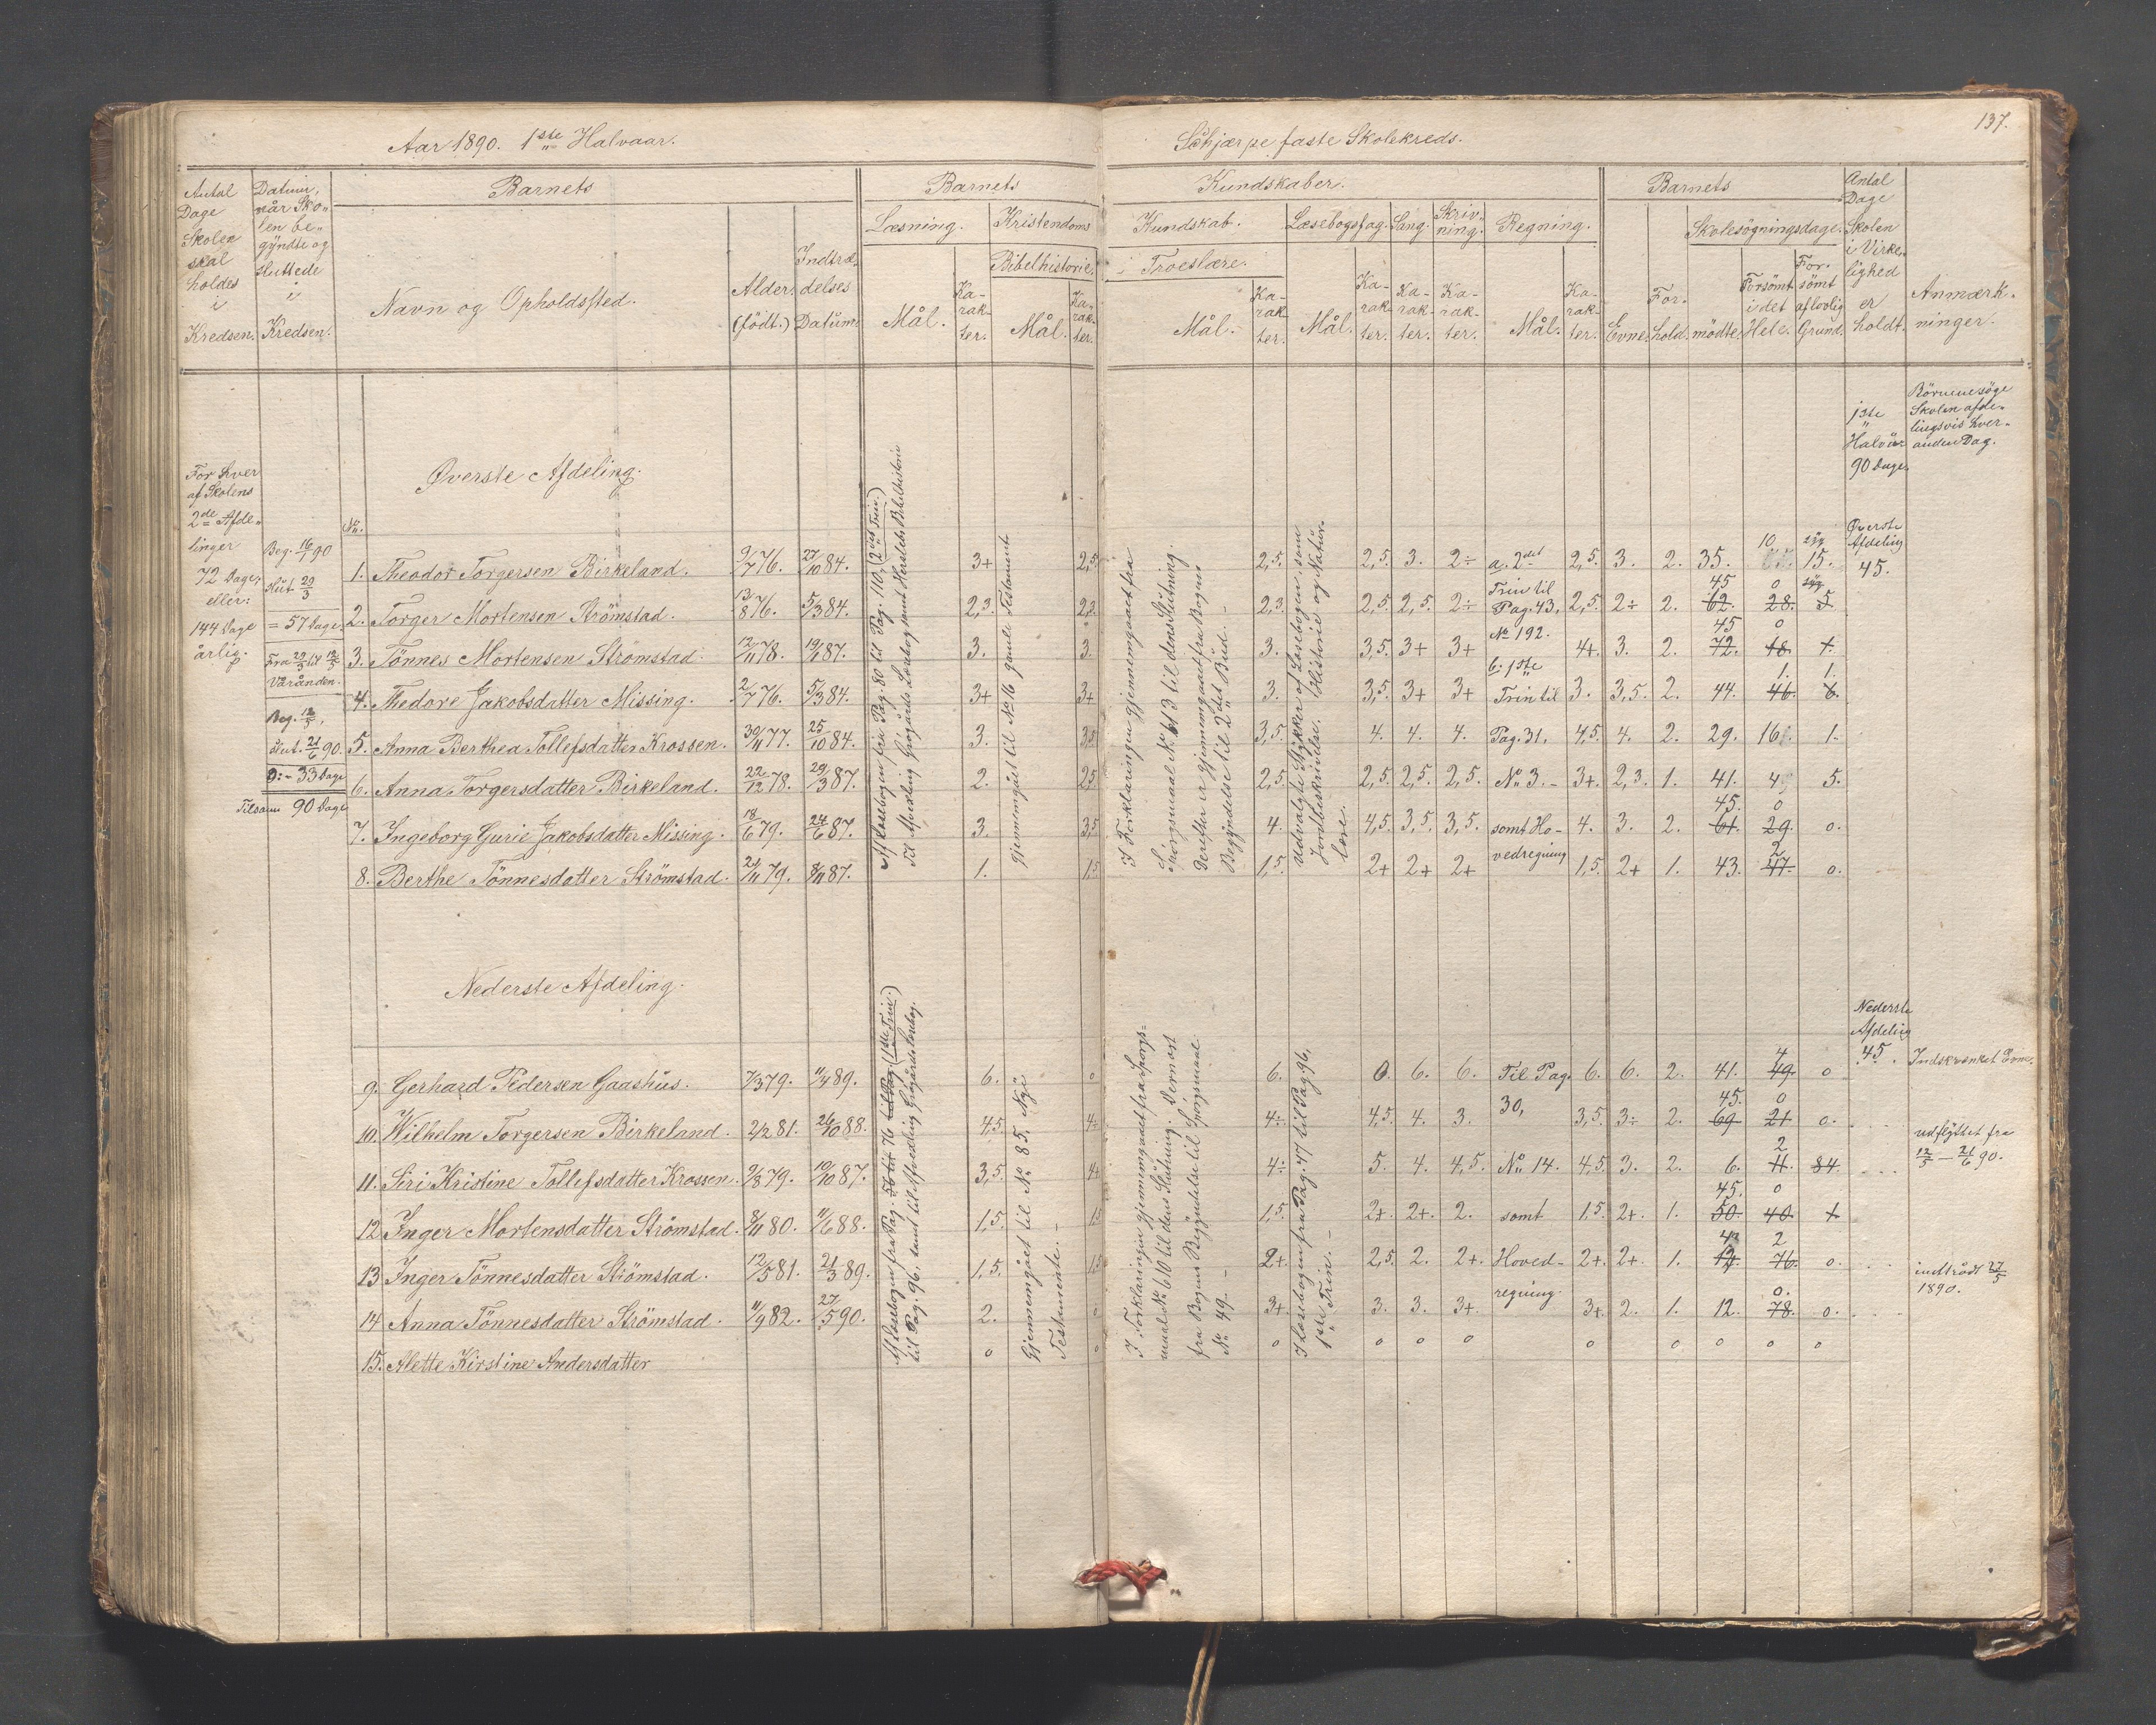 Aar 1890. 1ste Halvaar.
Skjærpe faste Skolekreds.
137.
Antal Dage Skolen skal holdes i Kredsen.
Datum, når Skolen begyndte og sluttede i Kredsen.
Barnets
Navn og Opholdssted.
Alder. (födt.)
Indtrædelses Datum.
Barnets
Kundskaber.
Læsning.
Mål.
Karakter.
Kristendoms
Kundskab.
Bibelhistorie.
Mål.
Karakter.
i Troeslære.
Mål.
Karakter.
Læsebogsfag.
Mål.
Karakter.
Sang.
Karakter.
Skrivning.
Karakter.
Regning.
Mål.
Karakter.
Barnets
Evne.
Forhold.
Skolesögningsdage.
mödte.
Forsömt i det Hele.
Forsömt af lovlig Grund.
Antal Dage Skolen i Virkelighed er holdt.
Anmærkninger.
For hver
af Skolens
2de Afde-
linger
72 Dage,
eller:
144 Dage
årlig.
Beg. 16/1 90
Slut. 29/3
= 57 Dage.
Fra 29/3 til 12/5
Våranden.
Beg. 12/5,
slut. 21/6 90.
= 33 Dage
Tilsam 90 Dage
Øverste Afdeling.
No.
1ste
Halvår
90 Dage.
Börnene söge
Skolen afde-
lingsvis hver-
anden Dag.
Øverste
Afdeling
45.
1. Theodor Torgersen Birkeland. 9/7 76. 27/10 84. 3+ 2,5. 2,5. 2,5. 3. 2÷ a. 2det 2,5. 3. 2. 35. 10. 15.
2. Torger Mortensen Strömstad. 13/8 76. 5/3 84. 2,3. 2,3. 2,3. 2,5. 2,5. 2÷ Trin til Pag. 43, 2,5. 2÷ 2. 45 62. 0 28. 5
3. Tönnes Mortensen Strömstad. 12/11 78. 19/1 87. 3. 3. 3. 3,5. 3+ 3+ No 192. 4+. 3. 2. 45 72. 0 18. 1.
4. Thedore Jakobsdatter Missing. 2/7 76. 5/3 84. 3+ 3+ 3. 3,5. 3+ 3+ b. 1ste Trin til 3. 3,5. 2. 44. 1. 46. 1. 6.
5. Anna Berthea Tollefsdatter Krossen. 30/11 77. 25/10 84. 3. 3,5 3,5. 4. 4. 4. Pag. 31, 4,5. 4. 2. 29. 16. 1.
6. Anna Torgersdatter Birkeland. 22/12 78. 29/3 87. 2. 2,5 2,5. 2,5. 2,5. 2,5. No 3. – 3+. 2,3. 1. 41. 4 5.
7. Ingeborg Gurie Jakobsdatter Missing. 18/6 79. 24/6 87. 3. 3,5 4. 4,5. 3,5. 3,5. samt Ho- 4. 3. 2. 45. 61. 0 29. 0.
8. Berthe Tönnesdatter Strömstad. 21/11 79. 8/11 87. 1. 1,5 1,5. 2+ 2+ 2+ vedregning 1,5. 2+ 1. 43. 2 47. 0.
Af Læsebogen fra Pag. 80 til Pag. 110, (2det Trin.)
Til Afvexling Grøgårds Læsebog samt Herslebs Bibelhistorie
Gjennemgået til No 16 gamle Testament
I Forklaringen gjennemgaaet fra
Spørgsmaal No 613 til dens Slutning.
Derefter er gjennemgaaet fra Bogens
Begyndelse til 2det Bud. –
Udvalgte Stykker af Læsebogen, som
Jordbeskrivelse, Historie og Natur-
lære.
Nederste Afdeling.
Nederste
Afdeling
45.
9. Gerhard Pedersen Gaashus. 7/3 79. 11/4 89. 6. 0 6. 0. 6. 6. Til Pag. 6. 6. 2. 41. 4 49. 0 Indskrænket Evne.
10. Wilhelm Torgersen Birkeland. 2/2 81. 26/10 88. 4,5 4÷ 4÷ 4,5. 4. 3. 30, 3,5. 3÷ 2. 45. 69 0 21 0.
11. Siri Kristine Tollefsdatter Krossen. 9/8 79. 19/10 87. 3,5. 4+ 4÷ 5. 4. 4,5. No 14. 4,5. 3. 2. 6. 2 11. 84. udflyttet fra 12/5 – 21/6 90.
12. Inger Mortensdatter Strömstad. 8/11 80. 11/6 88. 1,5. 1,5 1,5. 2+. 2+. 2. samt 1,5. 2+. 1. 45. 50. 0 40. 1.
13. Inger Tönnesdatter Strömstad. 12/5 81. 21/3 89. 1,5. 1,5 2+. 2,5. 2. 2+. Hoved- 2+. 2+. 1. 43 2 76. 0.
14. Anna Tönnesdatter Strömstad. 11/9 82. 27/5 90. 2. 0 3+. 3. 3. 3+. regning. 3+. 2. 1. 12. 0. 78. 0. indtrådt 27/5 1890.
15. Alette Kirstine Andersdatter 0 0 0 0 0 0 0 0 0 0 0
Af Læsebogen fra Pag. 56 til 76 til Pag. (1ste Trin.)
til Pag. 96, samt til Afvexling Grøgårds Læsebog.
Gjennemgået til No 85, Nye
Testamente. –
I Forklaringen gjennemgaaet fra Spørgs-
maal No 610 til dens Slutning. Dernæst
fra Bogens Begyndelse til Spørgsmaal
No 49. –
I Læsebogen fra Pag. 47 til Pag. 96,
1ste Trin. –